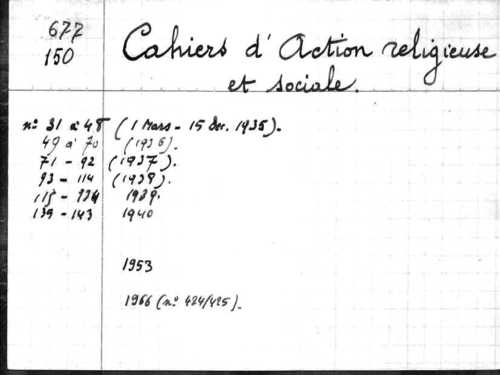 677
150
Cahiers d'Action religieuse
et sociale.
n° 31 à 48 (1 Mars - 15 Dec. 1935).
49 à 70 (1936).
71 - 92 (1937).
93 - 114 (1938).
115 - 1939.
139 - 143 1940
1953
1966 (n° 424/425).